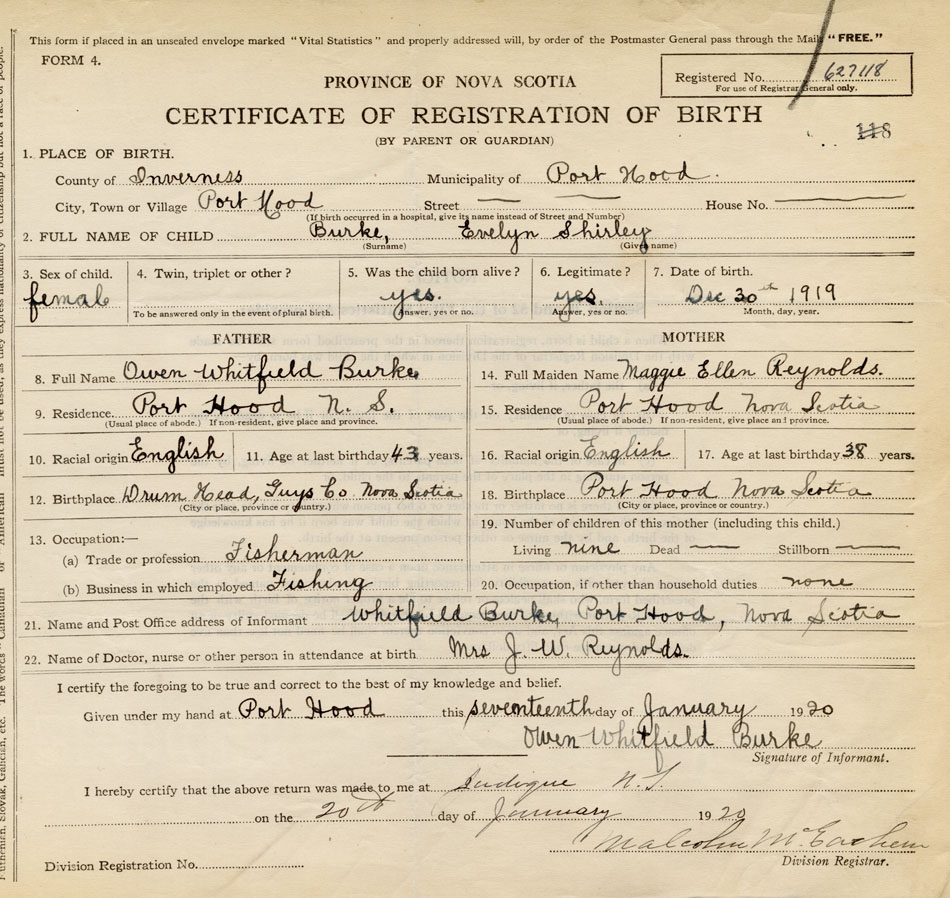 This form if placed in an unsealed envelope marked "Vital Statistics" and properly addressed will, by order of the Postmaster General pass through the Mail "FREE."
FORM 4.
Registered No. 627118
For use of Registrar General only.
PROVINCE OF NOVA SCOTIA
CERTIFICATE OF REGISTRATION OF BIRTH
118
(BY PARENT OR GUARDIAN)
1. PLACE OF BIRTH.
County of Inverness Municipality of Port Hood
City, Town or Village Port Hood Street — — House No. —
(If birth occurred in a hospital, give its name instead of Street and Number)
2. FULL NAME OF CHILD Burke, Evelyn Shirley
(Surname) (Given name)
3. Sex of child. 4. Twin, triplet or other? 5. Was the child born alive? 6. Legitimate? 7. Date of birth.
female yes. yes. Dec 30th 1919
To be answered only in the event of plural birth. Answer, yes or no. Answer, yes or no. Month, day, year.
FATHER MOTHER
8. Full Name Owen Whitfield Burke 14. Full Maiden Name Maggie Ellen Reynolds.
9. Residence. Port Hood N. S. 15. Residence Port Hood Nova Scotia
(Usual place of abode.) If non-resident, give place and province. (Usual place of abode.) If non-resident, give place and province.
10. Racial origin English 11. Age at last birthday 43 years. 16. Racial origin English 17. Age at last birthday 38 years.
12. Birthplace Drum Head, Guys Co Nova Scotia 18. Birthplace Port Hood Nova Scotia
(City or place, province or country.) (City or place, province or country.)
13. Occupation:— 19. Number of children of this mother (including this child.)
(a) Trade or profession Fisherman Living nine Dead — Stillborn —
(b) Business in which employed Fishing 20. Occupation, if other than household duties none
21. Name and Post Office address of Informant Whitfield Burke, Port Hood, Nova Scotia
22. Name of Doctor, nurse or other person in attendance at birth Mrs J. W. Reynolds.
I certify the foregoing to be true and correct to the best of my knowledge and belief.
Given under my hand at Port Hood this seventeenth day of January 1920
Owen Whitfield Burke
Signature of Informant.
I hereby certify that the above return was made to me at Judique N.S.
on the 20th day of January 1920
Malcolm McEachern
Division Registration No. Division Registrar.